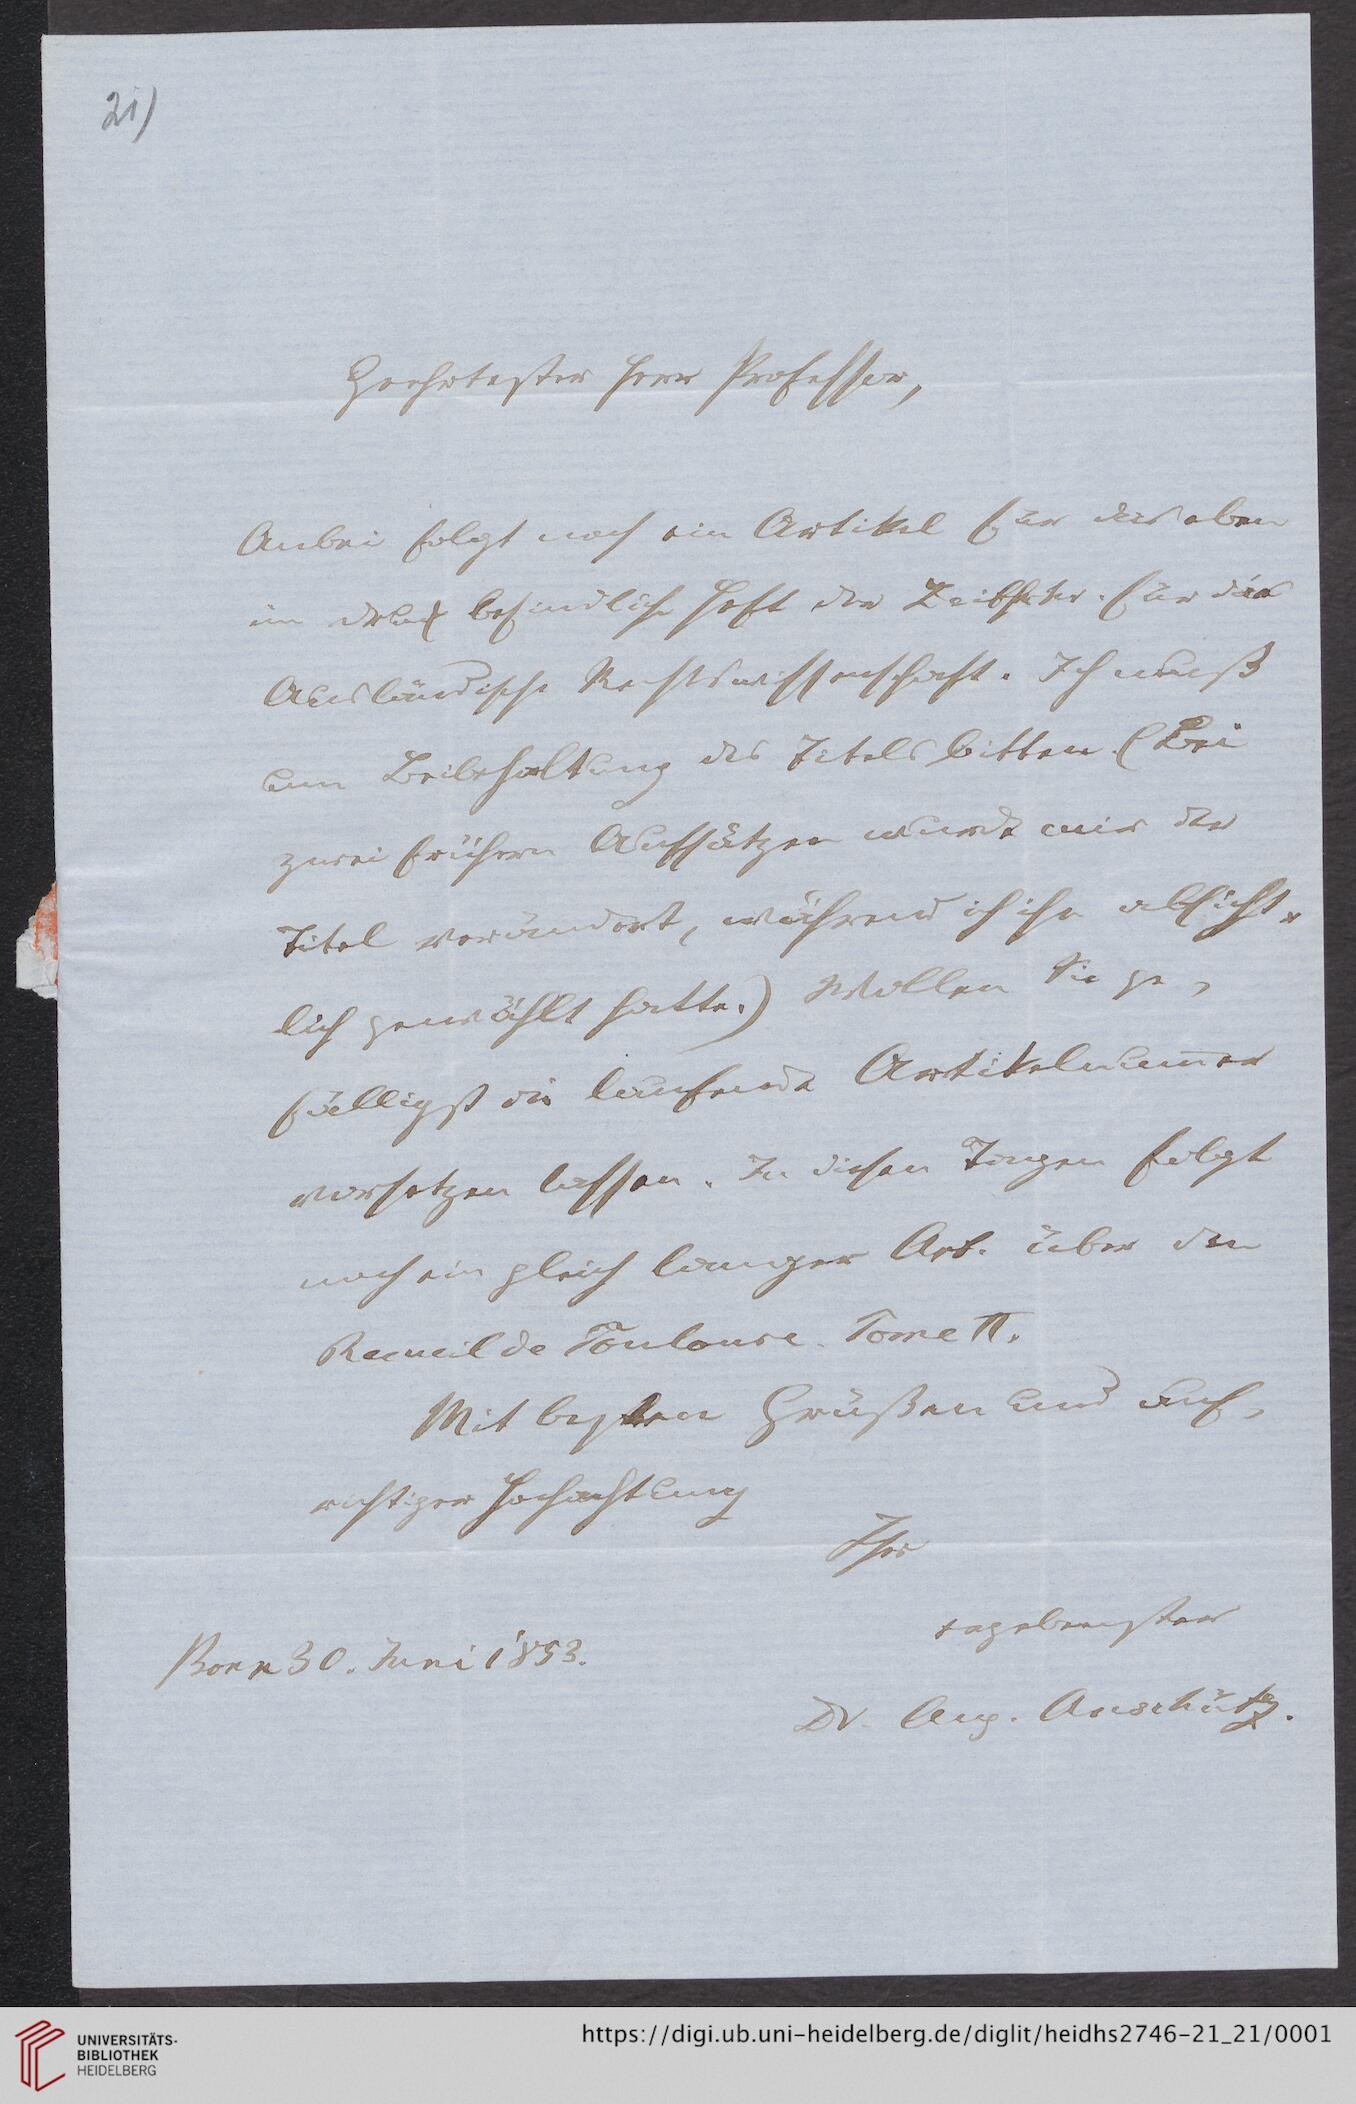 21)
Geehrtester Herr Professor,
Anbei folgt noch ein Artikel für das eben
im Druck befindliche Heft der Zeitschr. für die
Ausländische Rechtswissenschaft. Ich muß
um Beibehaltung des Titels bitten. (Bei
zwei frühern Aufsätzen wurde mir der
Titel verändert, während ich ihn absicht-
lich gewählt hatte.) Wollen Sie ge-
fälligst die laufende Artikelnum̅er
vorsetzen lassen. In diesen Tagen folgt
noch ein gleich langer Art. über den
Recueil de Toulouse. Tome II.
Mit besten Grüßen und auf-
richtiger Hochachtung
Ihr
ergebenster
Bonn 30. Juni 1853.
Dr. Aug. Anschütz.
UNIVERSITÄTS-
BIBLIOTHEK
HEIDELBERG
https://digi.ub.uni-heidelberg.de/diglit/heidhs2746-21_21/0001